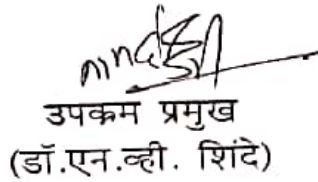 उपकम प्रमुख
(डॉ.एन.व्ही. शिंदे)